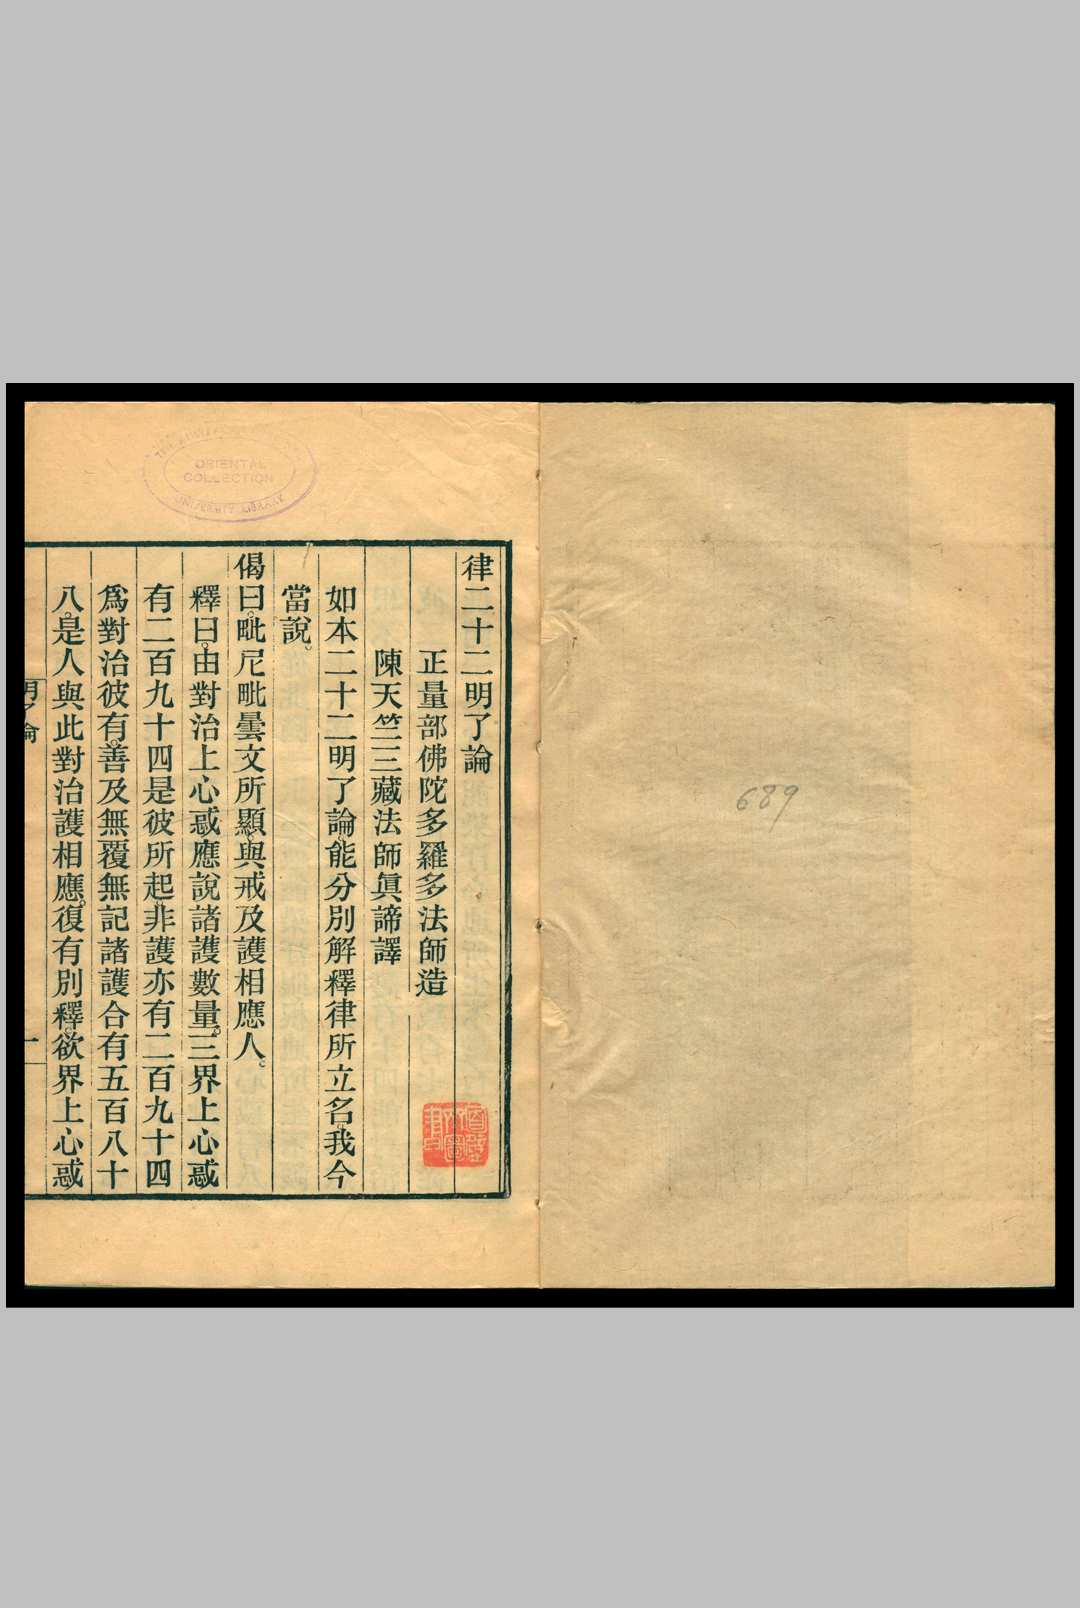 689
ORIENTAL
COLLECTION
UNIVERSITY LIBRARY
律二十二明了論
正量部佛陀多羅多法師造
陳天竺三藏法師眞諦譯
如本二十二明了論。能分別解釋律所立名。我今
當說。
偈曰。毗尼毗曇文所顯。與戒及護相應人。
釋曰。由對治上心惑應說諸護數量。三界上心惑
有二百九十四是彼所起。非護亦有二百九十四
爲對治彼有。善及無覆無記諸護合有五百八十
八。是人與此對治護相應。復有別釋。欲界上心惑
明了論
一